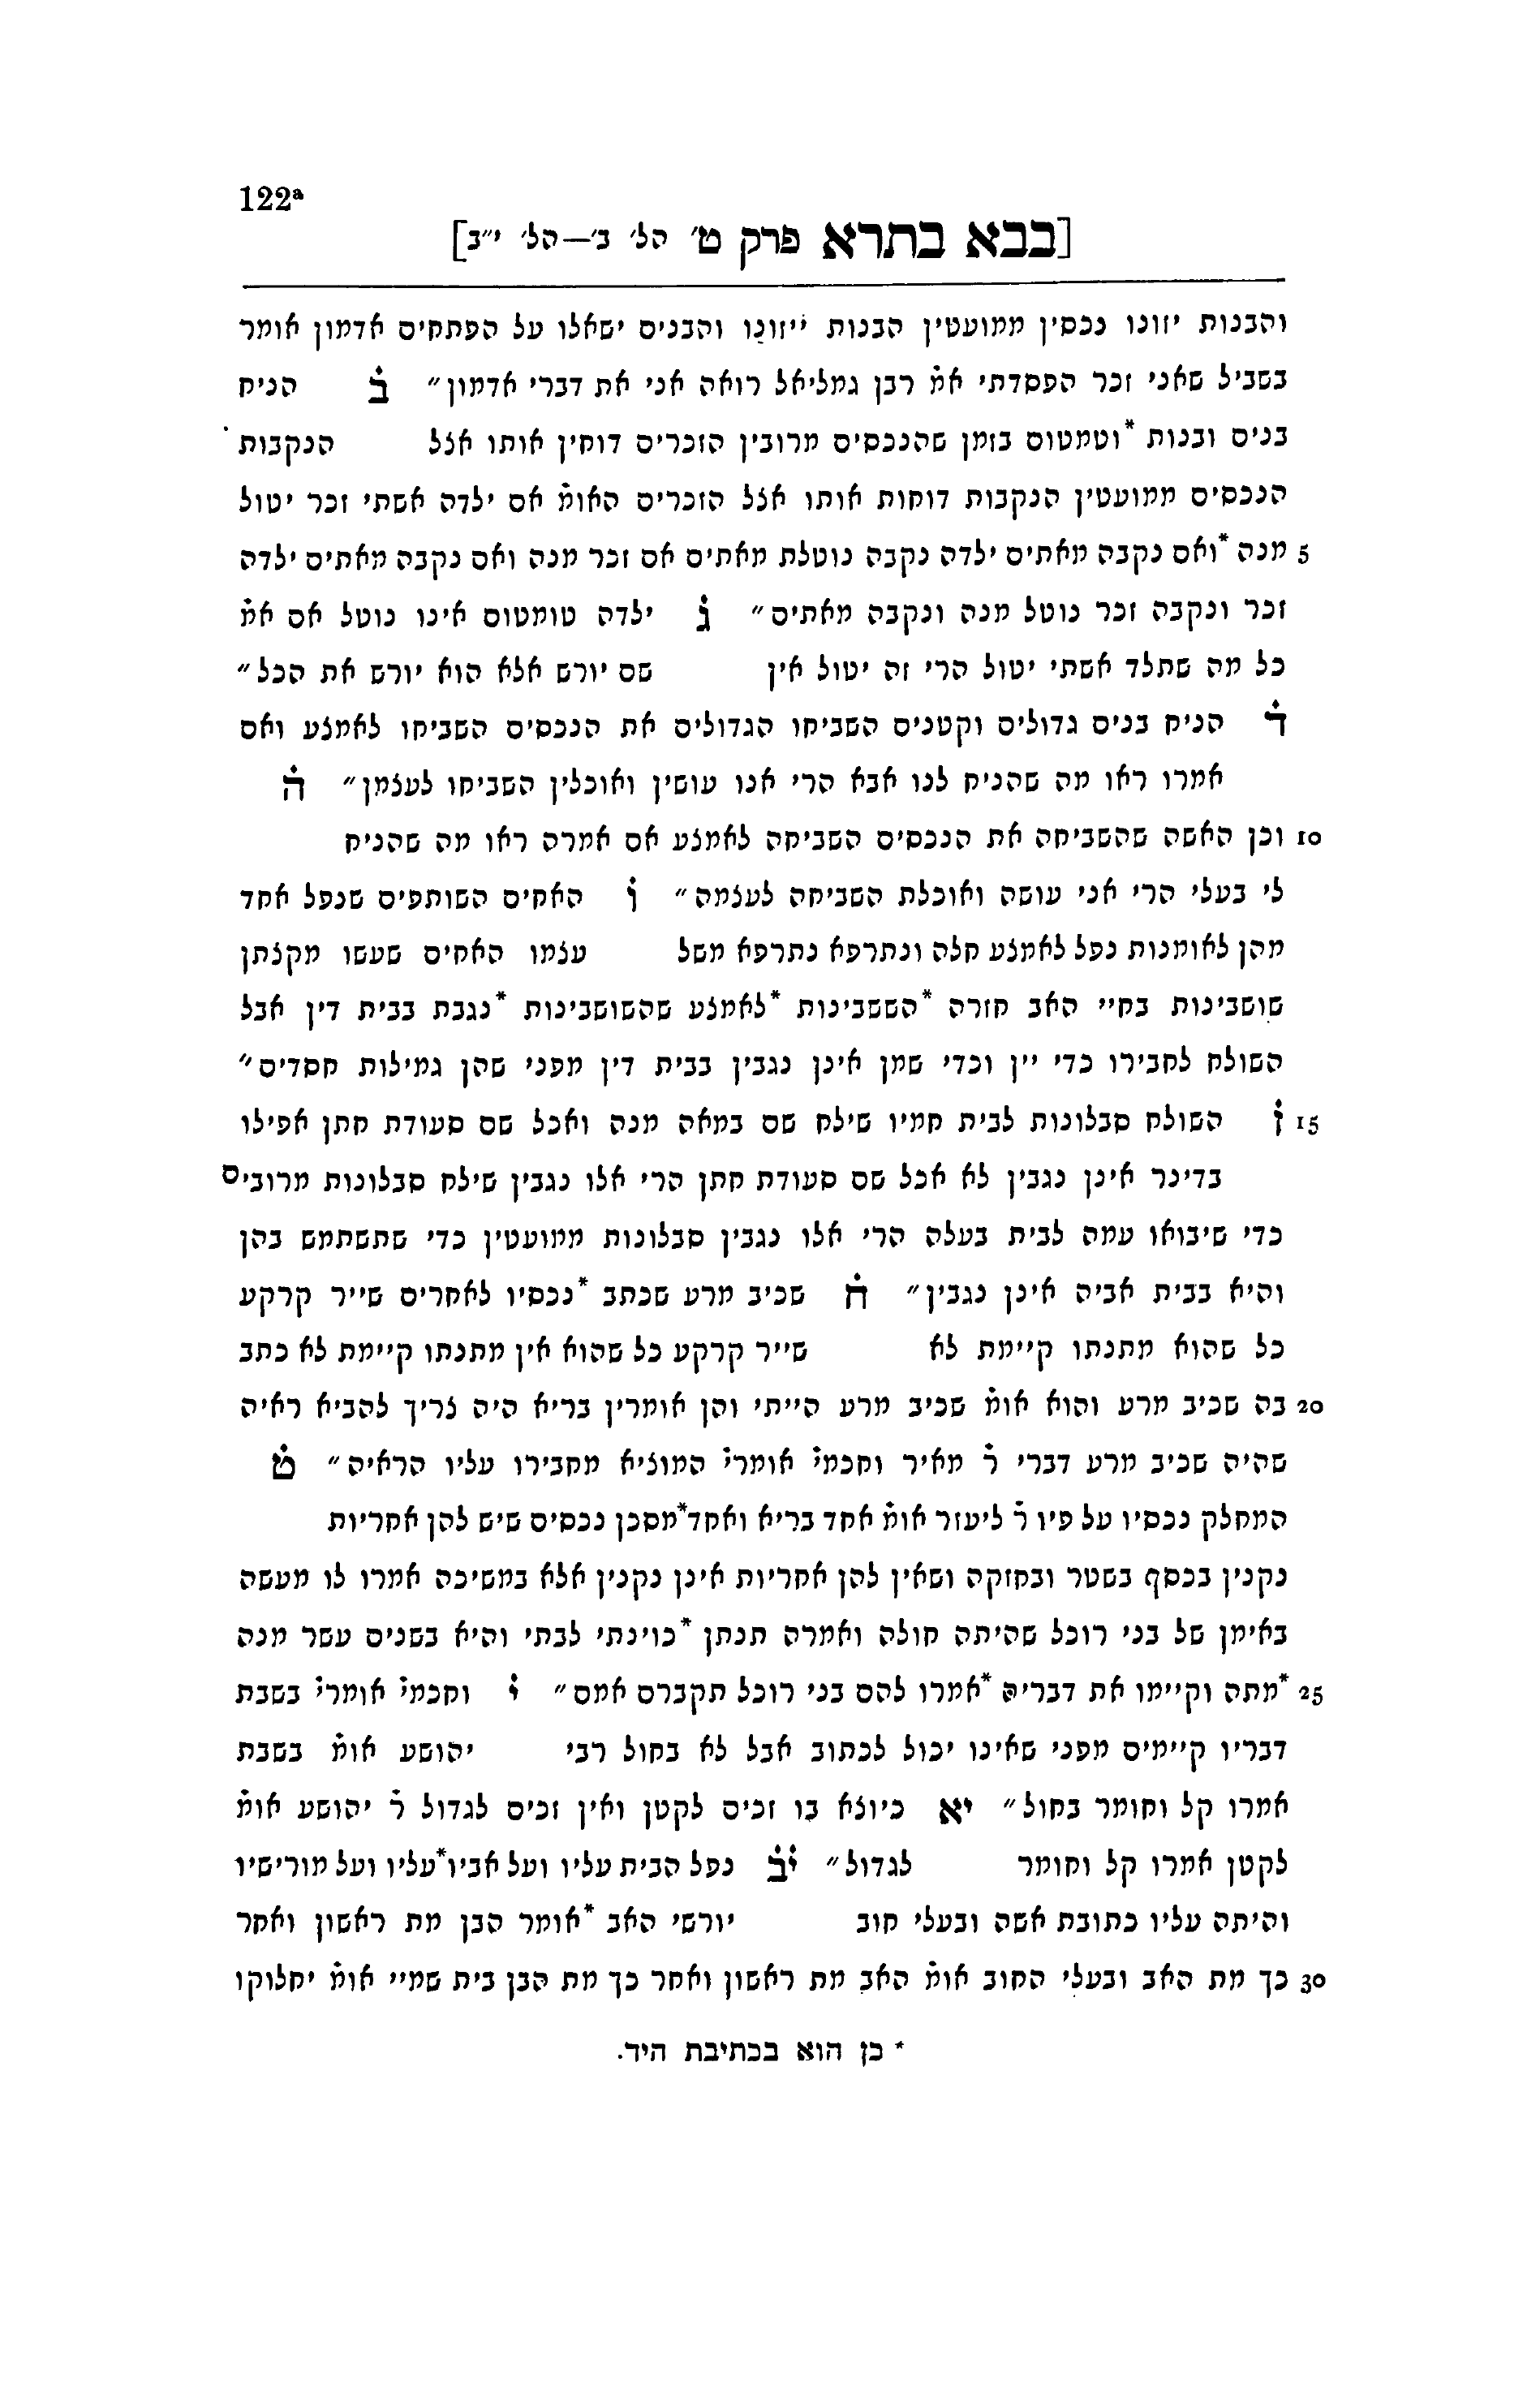 122ᵃ
[בבא בתרא פרק ט׳ הל׳ ב׳—הל׳ י״ב]
והבנות יזונו נכסין ממועטין הבנות ייזונו והבנים ישאלו על הפתחים אדמון אומר
בשביל שאני זכר הפסדתי אמ֗ רבן גמליאל רואה אני את דברי אדמון״ ב֗ הניח
בנים ובנות *וטמטום בזמן שהנכסים מרובין הזכרים דוחין אותו אצל הנקבות
הנכסים ממועטין הנקבות דוחות אותו אצל הזכרים האומ֗ אם ילדה אשתי זכר יטול
5 מנה *ואם נקבה מאתים ילדה נקבה נוטלת מאתים אם זכר מנה ואם נקבה מאתים ילדה
זכר ונקבה זכר נוטל מנה ונקבה מאתים״ ג֗ ילדה טומטום אינו נוטל אם אמ֗
כל מה שתלד אשתי יטול הרי זה יטול אין שם יורש אלא הוא יורש את הכל״
ד֗ הניח בנים גדולים וקטנים השביחו הגדולים את הנכסים השביחו לאמצע ואם
אמרו ראו מה שהניח לנו אבא הרי אנו עושין ואוכלין השביחו לעצמן״ ה֗
10 וכן האשה שהשביחה את הנכסים השביחה לאמצע אם אמרה ראו מה שהניח
לי בעלי הרי אני עושה ואוכלת השביחה לעצמה״ ו֗ האחים השותפים שנפל אחד
מהן לאומנות נפל לאמצע חלה ונתרפא נתרפא משל עצמו האחים שעשו מקצתן
שושבינות בחיי האב חזרה *הששבינות *לאמצע שהשושבינות *נגבת בבית דין אבל
השולח לחבירו כדי יין וכדי שמן אינן נגבין בבית דין מפני שהן גמילות חסדים״
15 ז֗ השולח סבלונות לבית חמיו שילח שם במאה מנה ואכל שם סעודת חתן אפילו
בדינר אינן נגבין לא אכל שם סעודת חתן הרי אלו נגבין שילח סבלונות מרובים
כדי שיבואו עמה לבית בעלה הרי אלו נגבין סבלונות ממועטין כדי שתשתמש בהן
והיא בבית אביה אינן נגבין״ ח֗ שכיב מרע שכתב *נכסיו לאחרים שייר קרקע
כל שהוא מתנתו קיימת לא שייר קרקע כל שהוא אין מתנתו קיימת לא כתב
20 בה שכיב מרע והוא אומ֗ שכיב מרע הייתי והן אומרין בריא היה צריך להביא ראיה
שהיה שכיב מרע דברי ר֗ מאיר וחכמי֗ אומרי֗ המוציא מחבירו עליו הראיה״ ט֗
המחלק נכסיו על פיו ר֗ ליעזר אומ֗ אחד בריא ואחד *מסכן נכסים שיש להן אחריות
נקנין בכסף בשטר ובחזקה ושאין להן אחריות אינן נקנין אלא במשיכה אמרו לו מעשה
באימן של בני רוכל שהיתה חולה ואמרה תנתן *כוינתי לבתי והיא בשנים עשר מנה
25 *מתה וקיימו את דבריה *אמרו להם בני רוכל תקברם אמם״ י֗ וחכמי֗ אומרי֗ בשבת
דבריו קיימים מפני שאינו יכול לכתוב אבל לא בחול רבי יהושע אומ֗ בשבת
אמרו קל וחומר בחול״ יא כיוצא בו זכים לקטן ואין זכים לגדול ר֗ יהושע אומ֗
לקטן אמרו קל וחומר לגדול״ י֗ב֗ נפל הבית עליו ועל אביו *עליו ועל מורישיו
והיתה עליו כתובת אשה ובעלי חוב יורשי האב *אומר הבן מת ראשון ואחר
30 כך מת האב ובעלי החוב אומ֗ האב מת ראשון ואחר כך מת הבן בית שמיי אומ֗ יחלוקו
* כן הוא בכתיבת היד.